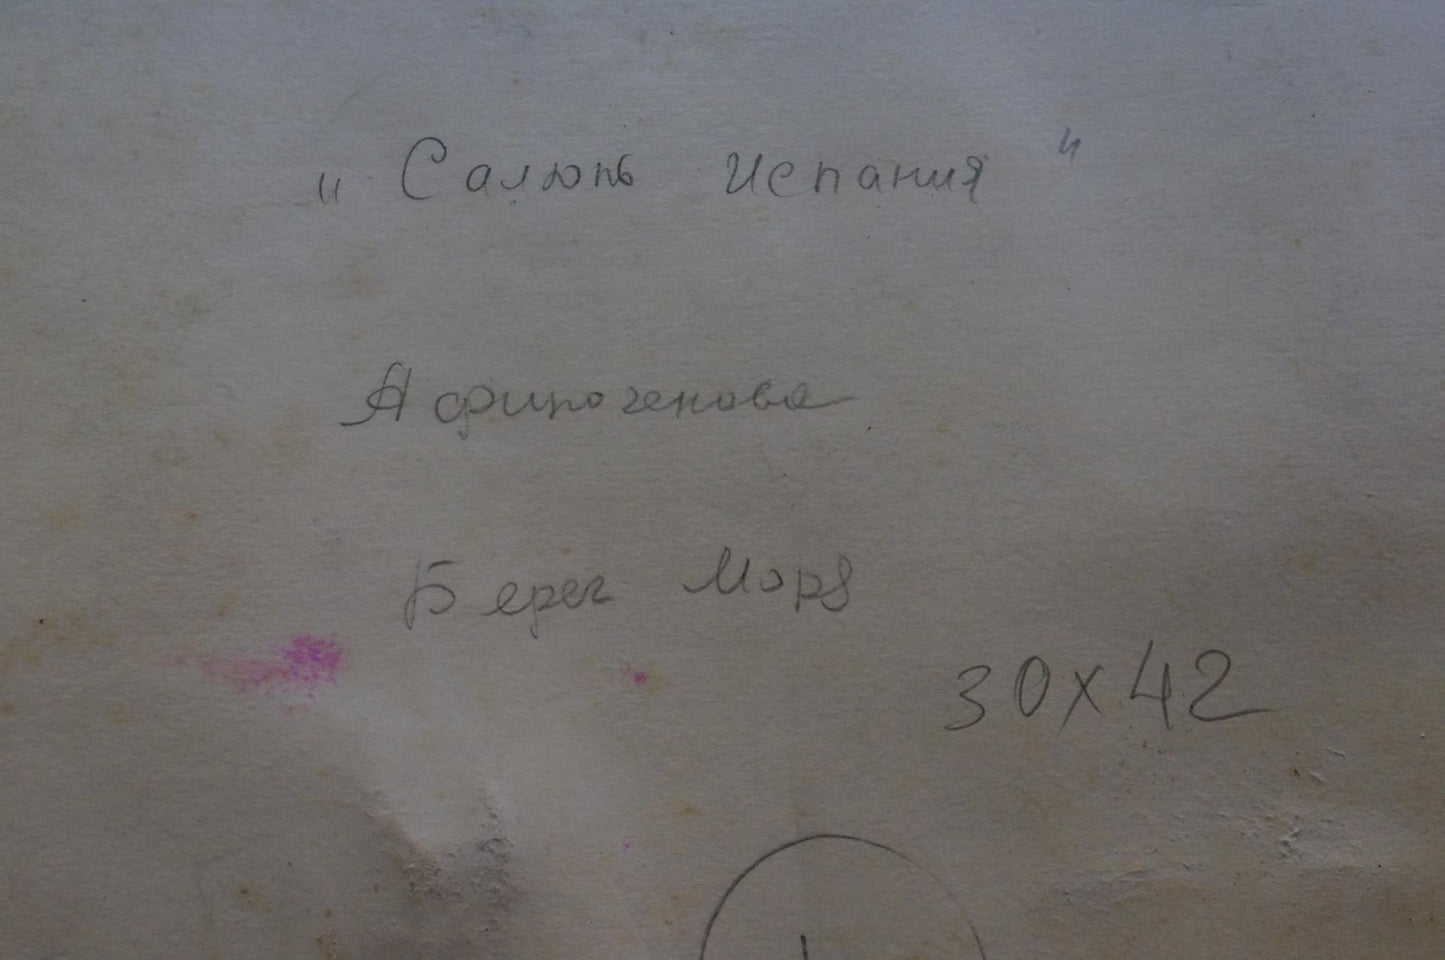 „Салютъ Испания"
Афиногенова
Берег Моря
30х42